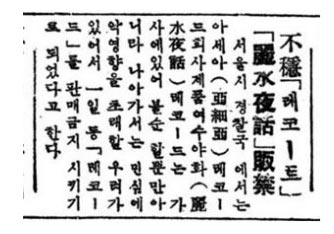 不穩「레코ー드」
「麗水夜話」販禁
서울시 경찰국 에서는
아세아(亞細亞)레코ー
드회사제품여수야화(麗
水夜話) 레코ー드는 가
사에있어 불순 할뿐만아
니라 나아가서는 민심에
악영향을 초래할 우려가
있어서 一일 동「레코ー
드」를 판매금지 시키기
로 되었다고 한다